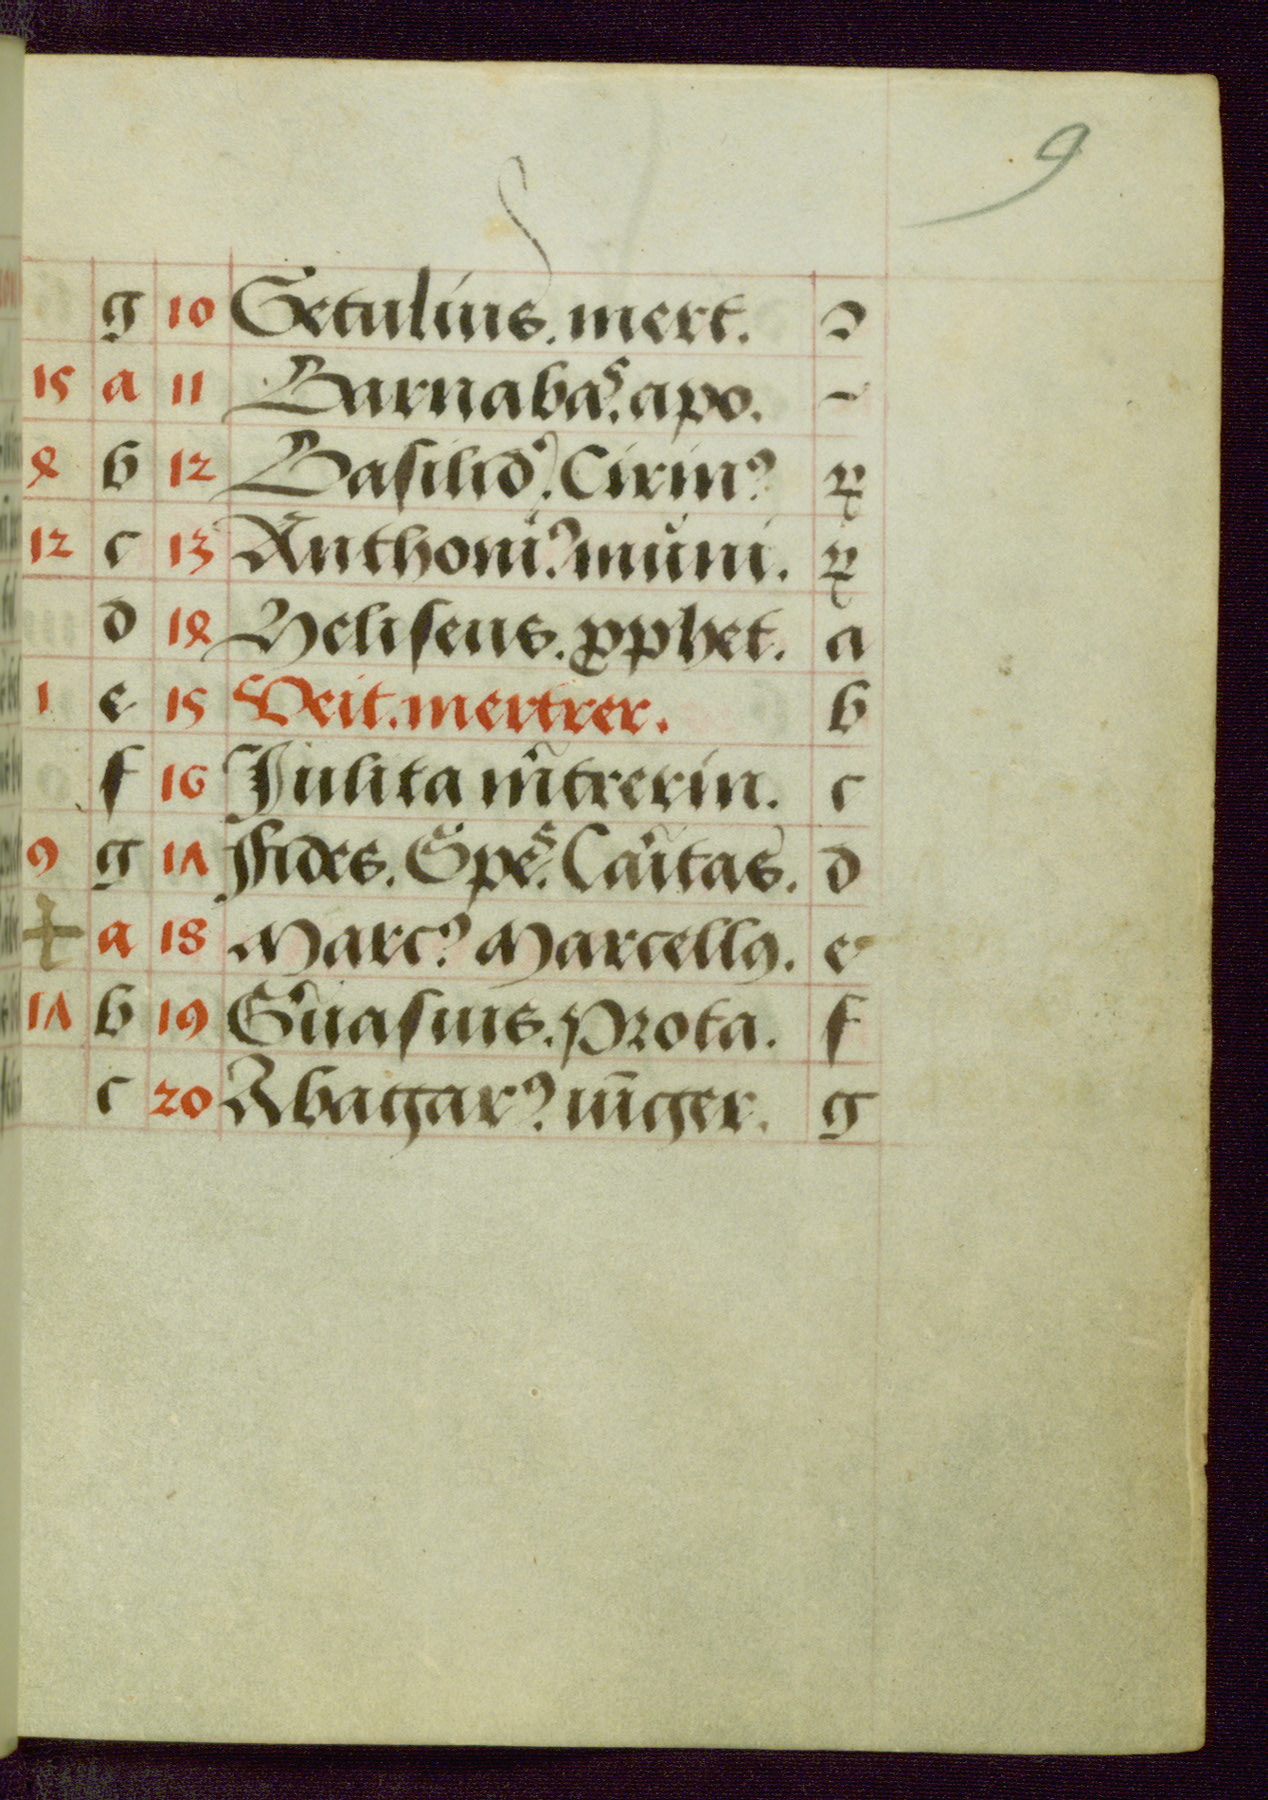 9
g 10 Getulius. mert. ꝛ
15 a 11 Barnabas. apo. ~
4 b 12 Basilidꝰ. Cirinꝰ x
12 c 13 Anthoniꝰ muni. x
d 14 Heliseus. ꝓphet. a
1 e 15 Veit. mertrer. b
f 16 Julita m̄trerin. c
9 g 17 Fides. Spes. Caritas. d
+ a 18 Marcꝰ Marcellꝯ. e
17 b 19 G̾uasius. Prota. f
c 20 Abagarꝰ iūger. g